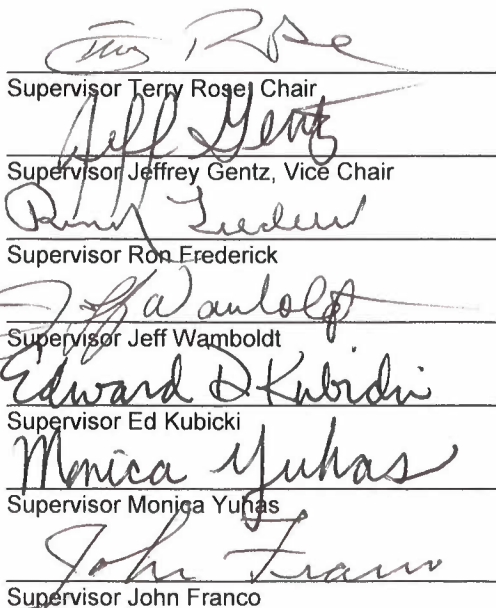 Terry Rose
Supervisor Terry Rose, Chair
Jeff Gentz
Supervisor Jeffrey Gentz, Vice Chair
Ron Frederick
Supervisor Ron Frederick
Jeff Wamboldt
Supervisor Jeff Wamboldt
Edward D Kubicki
Supervisor Ed Kubicki
Monica Yuhas
Supervisor Monica Yuhas
John Franco
Supervisor John Franco